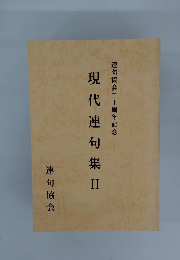 連句協会二十周年記念
現代連句集Ⅱ
連句協会